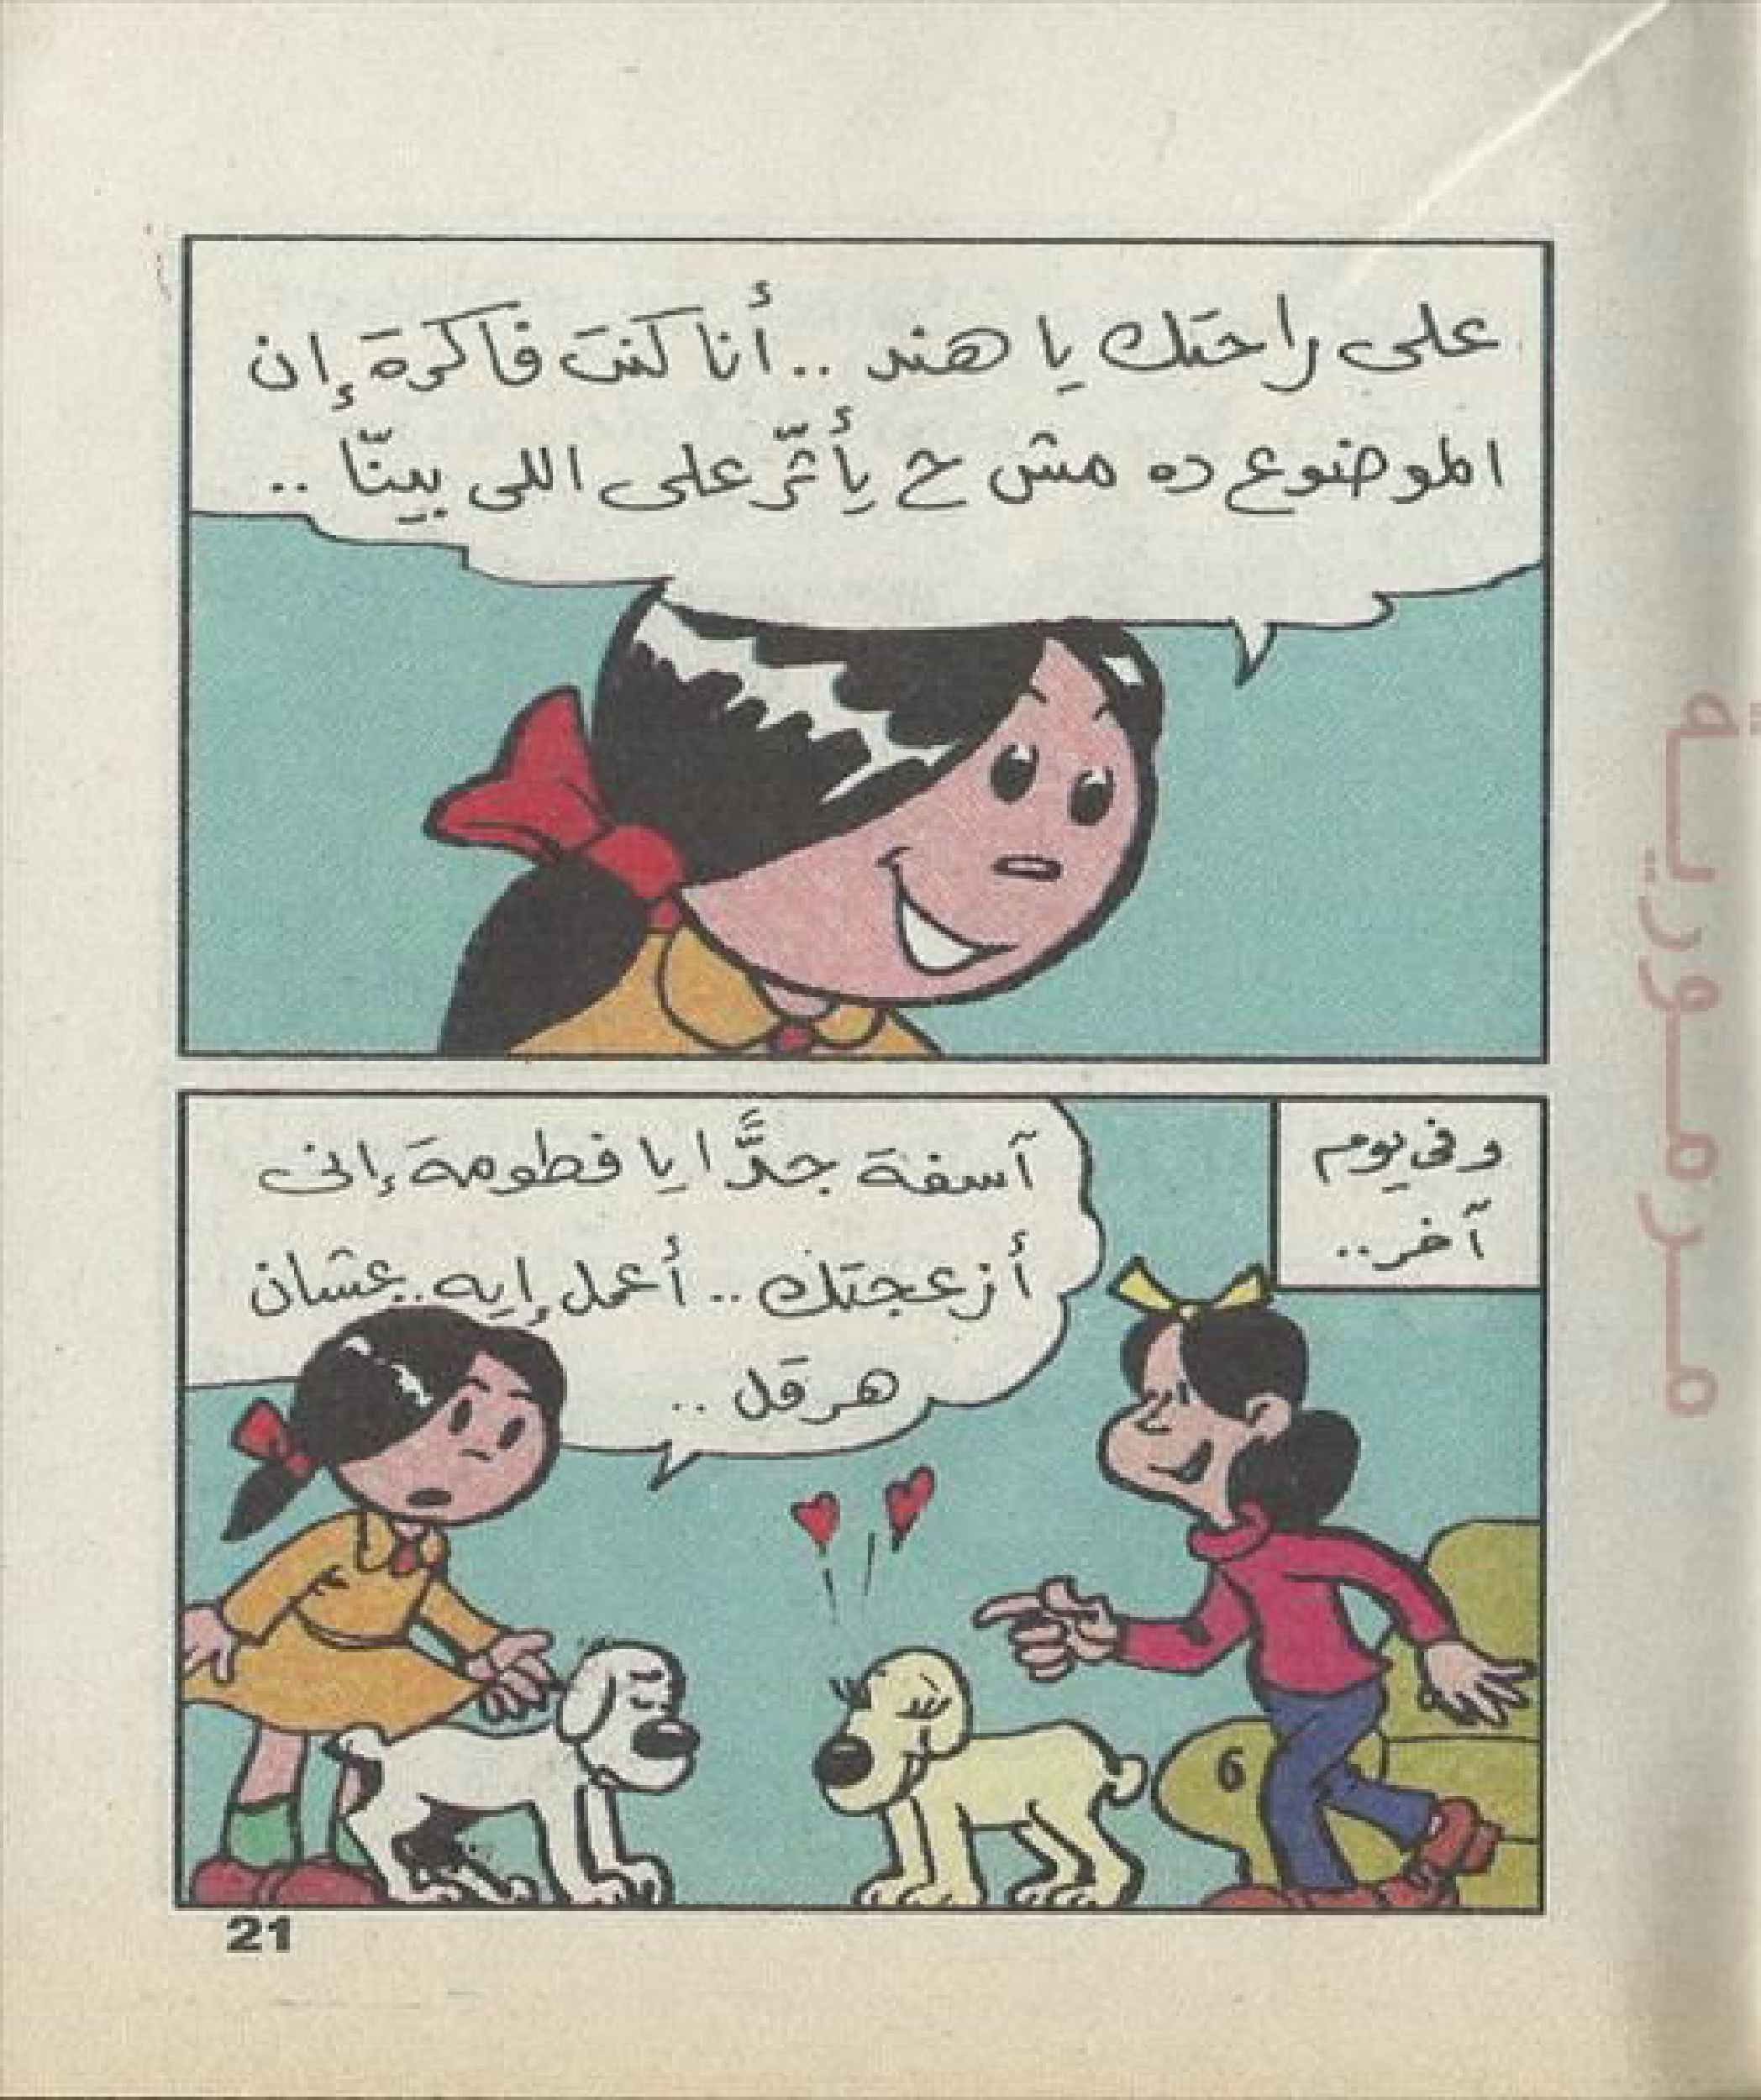 على راحتك يا هند .. أنا كنت فاكرة إن
الموضوع ده مش ح يأثّر على اللى بينّا ..
وفى يوم
آخر..
آسفة جدًّا يا فطومة إنى
أزعجتك .. أعمل إيه .. عشان
هرقل ..
6
21
مرمورية